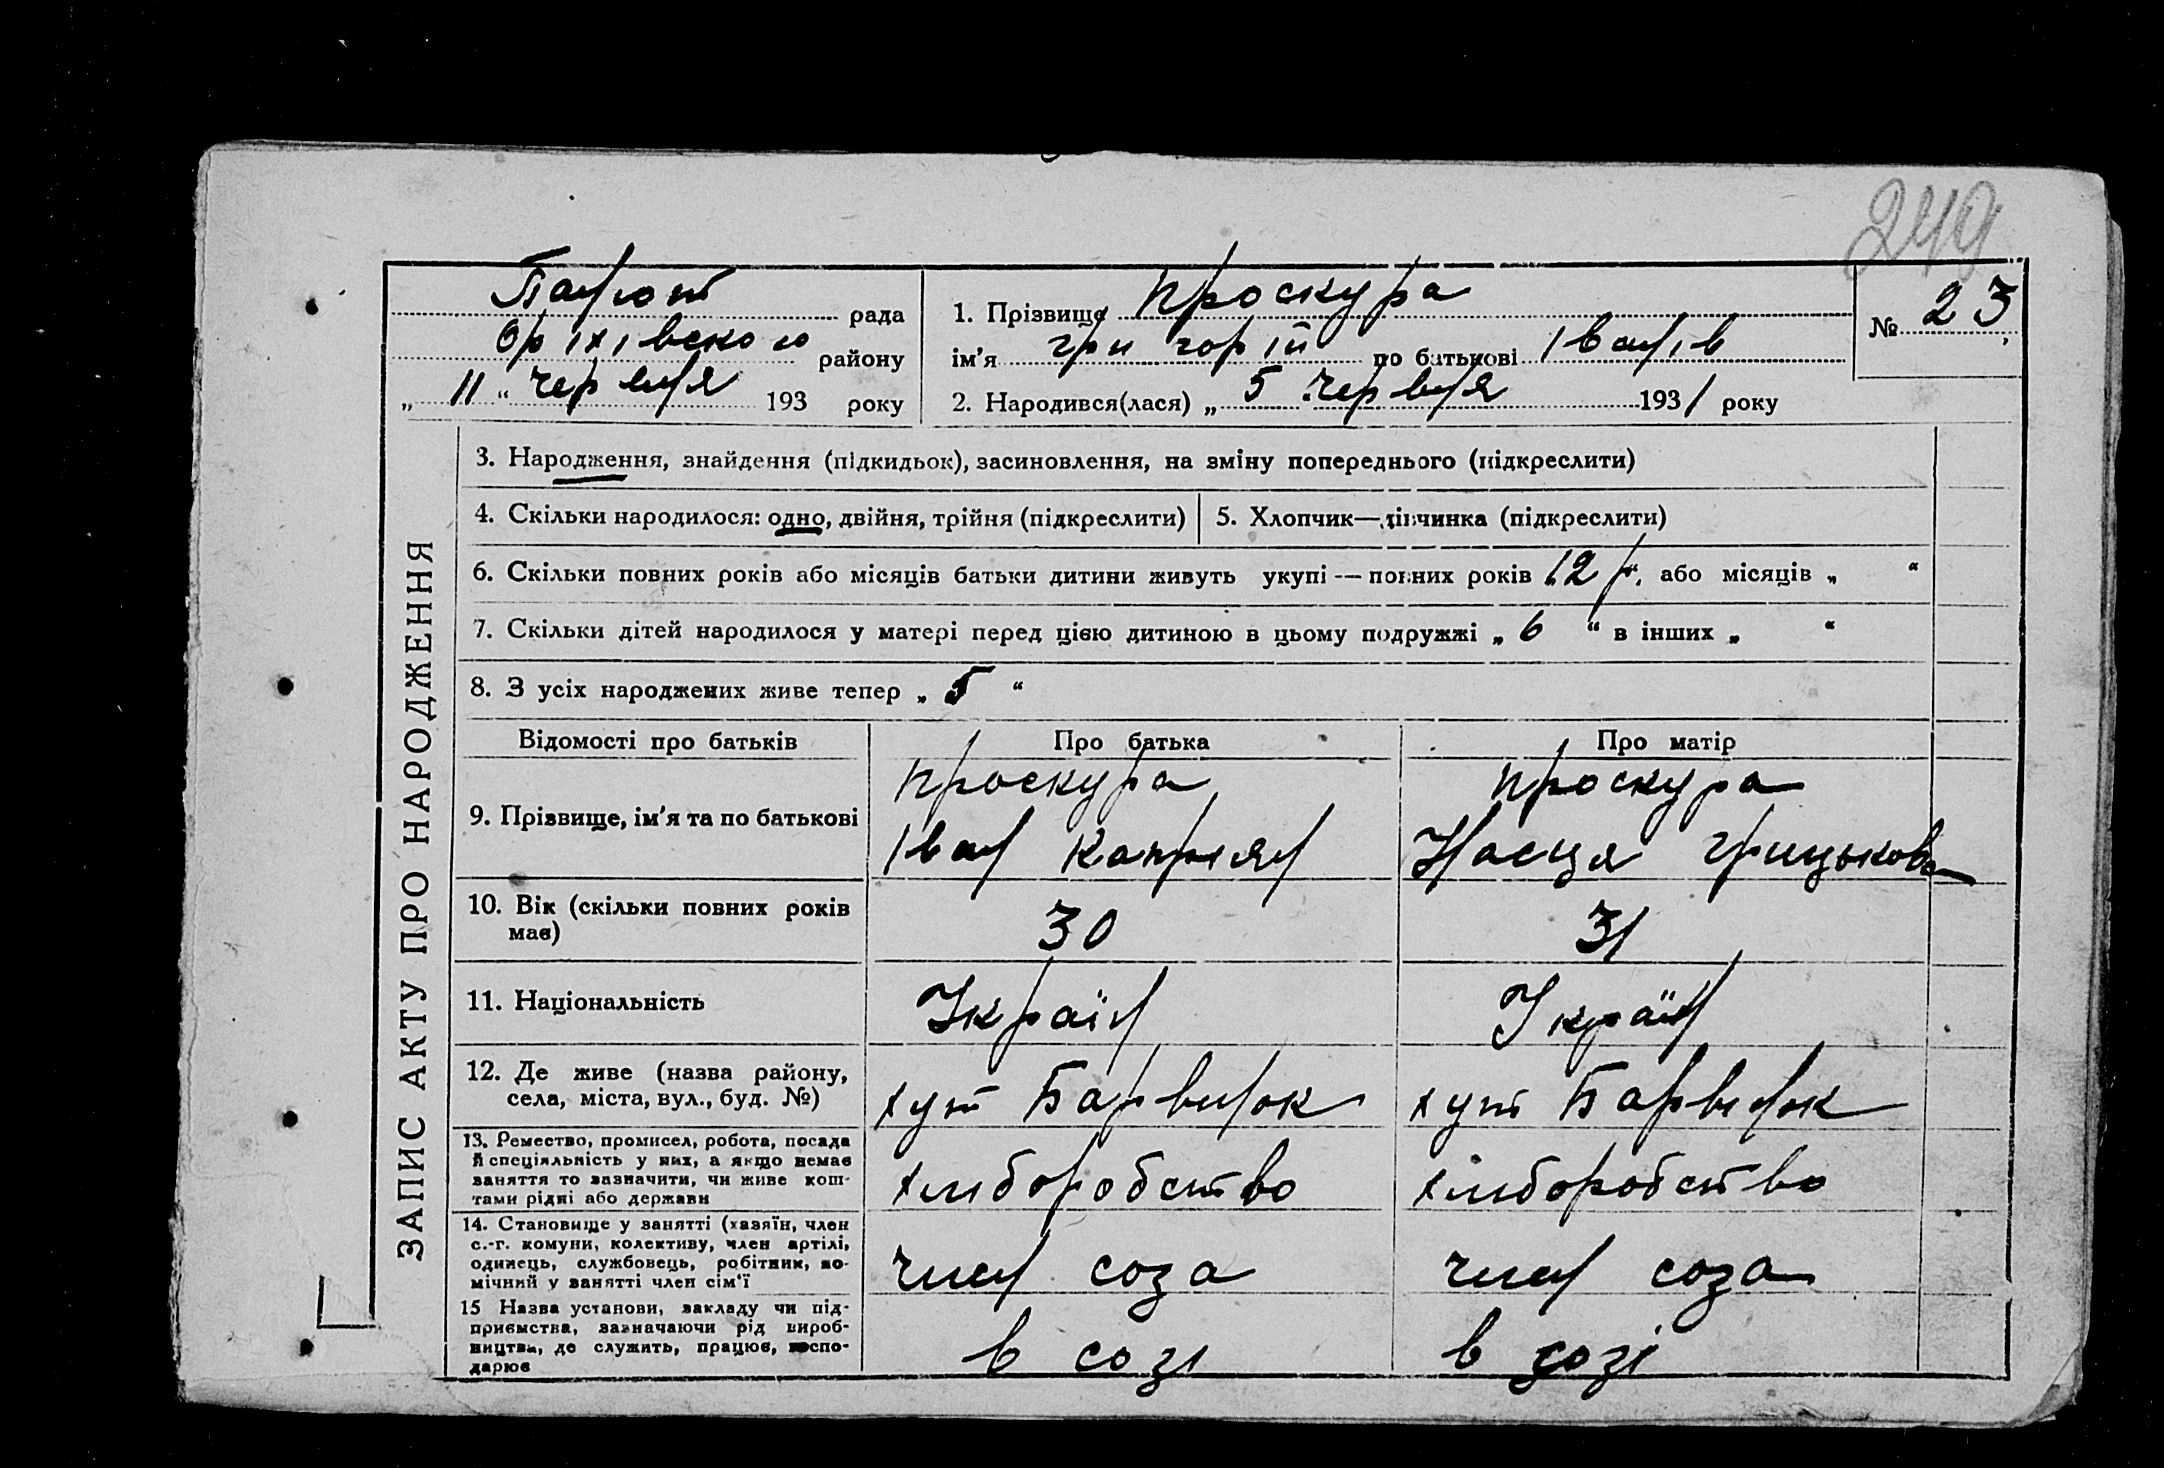 249
рада
Оріхівського району
„ 11 “ червня 193 року
1. Прізвище Проскура
ім'я Григорій по батькові Іванів
2. Народився(лася) „ 5 червня 1931 року
№ 23
ЗАПИС АКТУ ПРО НАРОДЖЕННЯ
3. Народження, знайдення (підкидьок), засиновлення, на зміну попереднього (підкреслити)
4. Скільки народилося: одно, двійня, трійня (підкреслити)
5. Хлопчик—дівчинка (підкреслити)
6. Скільки повних років або місяців батьки дитини живуть укупі — повних років „12 р“, або місяців „ “
7. Скільки дітей народилося у матері перед цією дитиною в цьому подружжі „ 6 “ в інших „ “
8. З усіх народжених живе тепер „ 5 “
Відомості про батьків
Про батька
Про матір
9. Прізвище, ім'я та по батькові
Проскура
Іван
Проскура
Насця Грицькова
10. Вік (скільки повних років
має)
30
31
11. Національність
Україн
Україн
12. Де живе (назва району,
села, міста, вул., буд. №)
хут Барвінок
хут Барвінок
13. Ремество, промисел, робота, посада
й спеціяльність у них, а якщо немає
заняття то зазначити, чи живе кош-
тами рідні або держави
хліборобство
хліборобство
14. Становище у занятті (хазяїн, член
с.-г. комуни, колективу, член артілі,
одинець, службовець, робітник, по-
мічний у занятті член сім'ї
член соза
член соза
15 Назва установи, закладу чи під-
приємства, зазначаючи рід вироб-
ництва, де служить, працює, госпо-
дарює
в созі
в созі